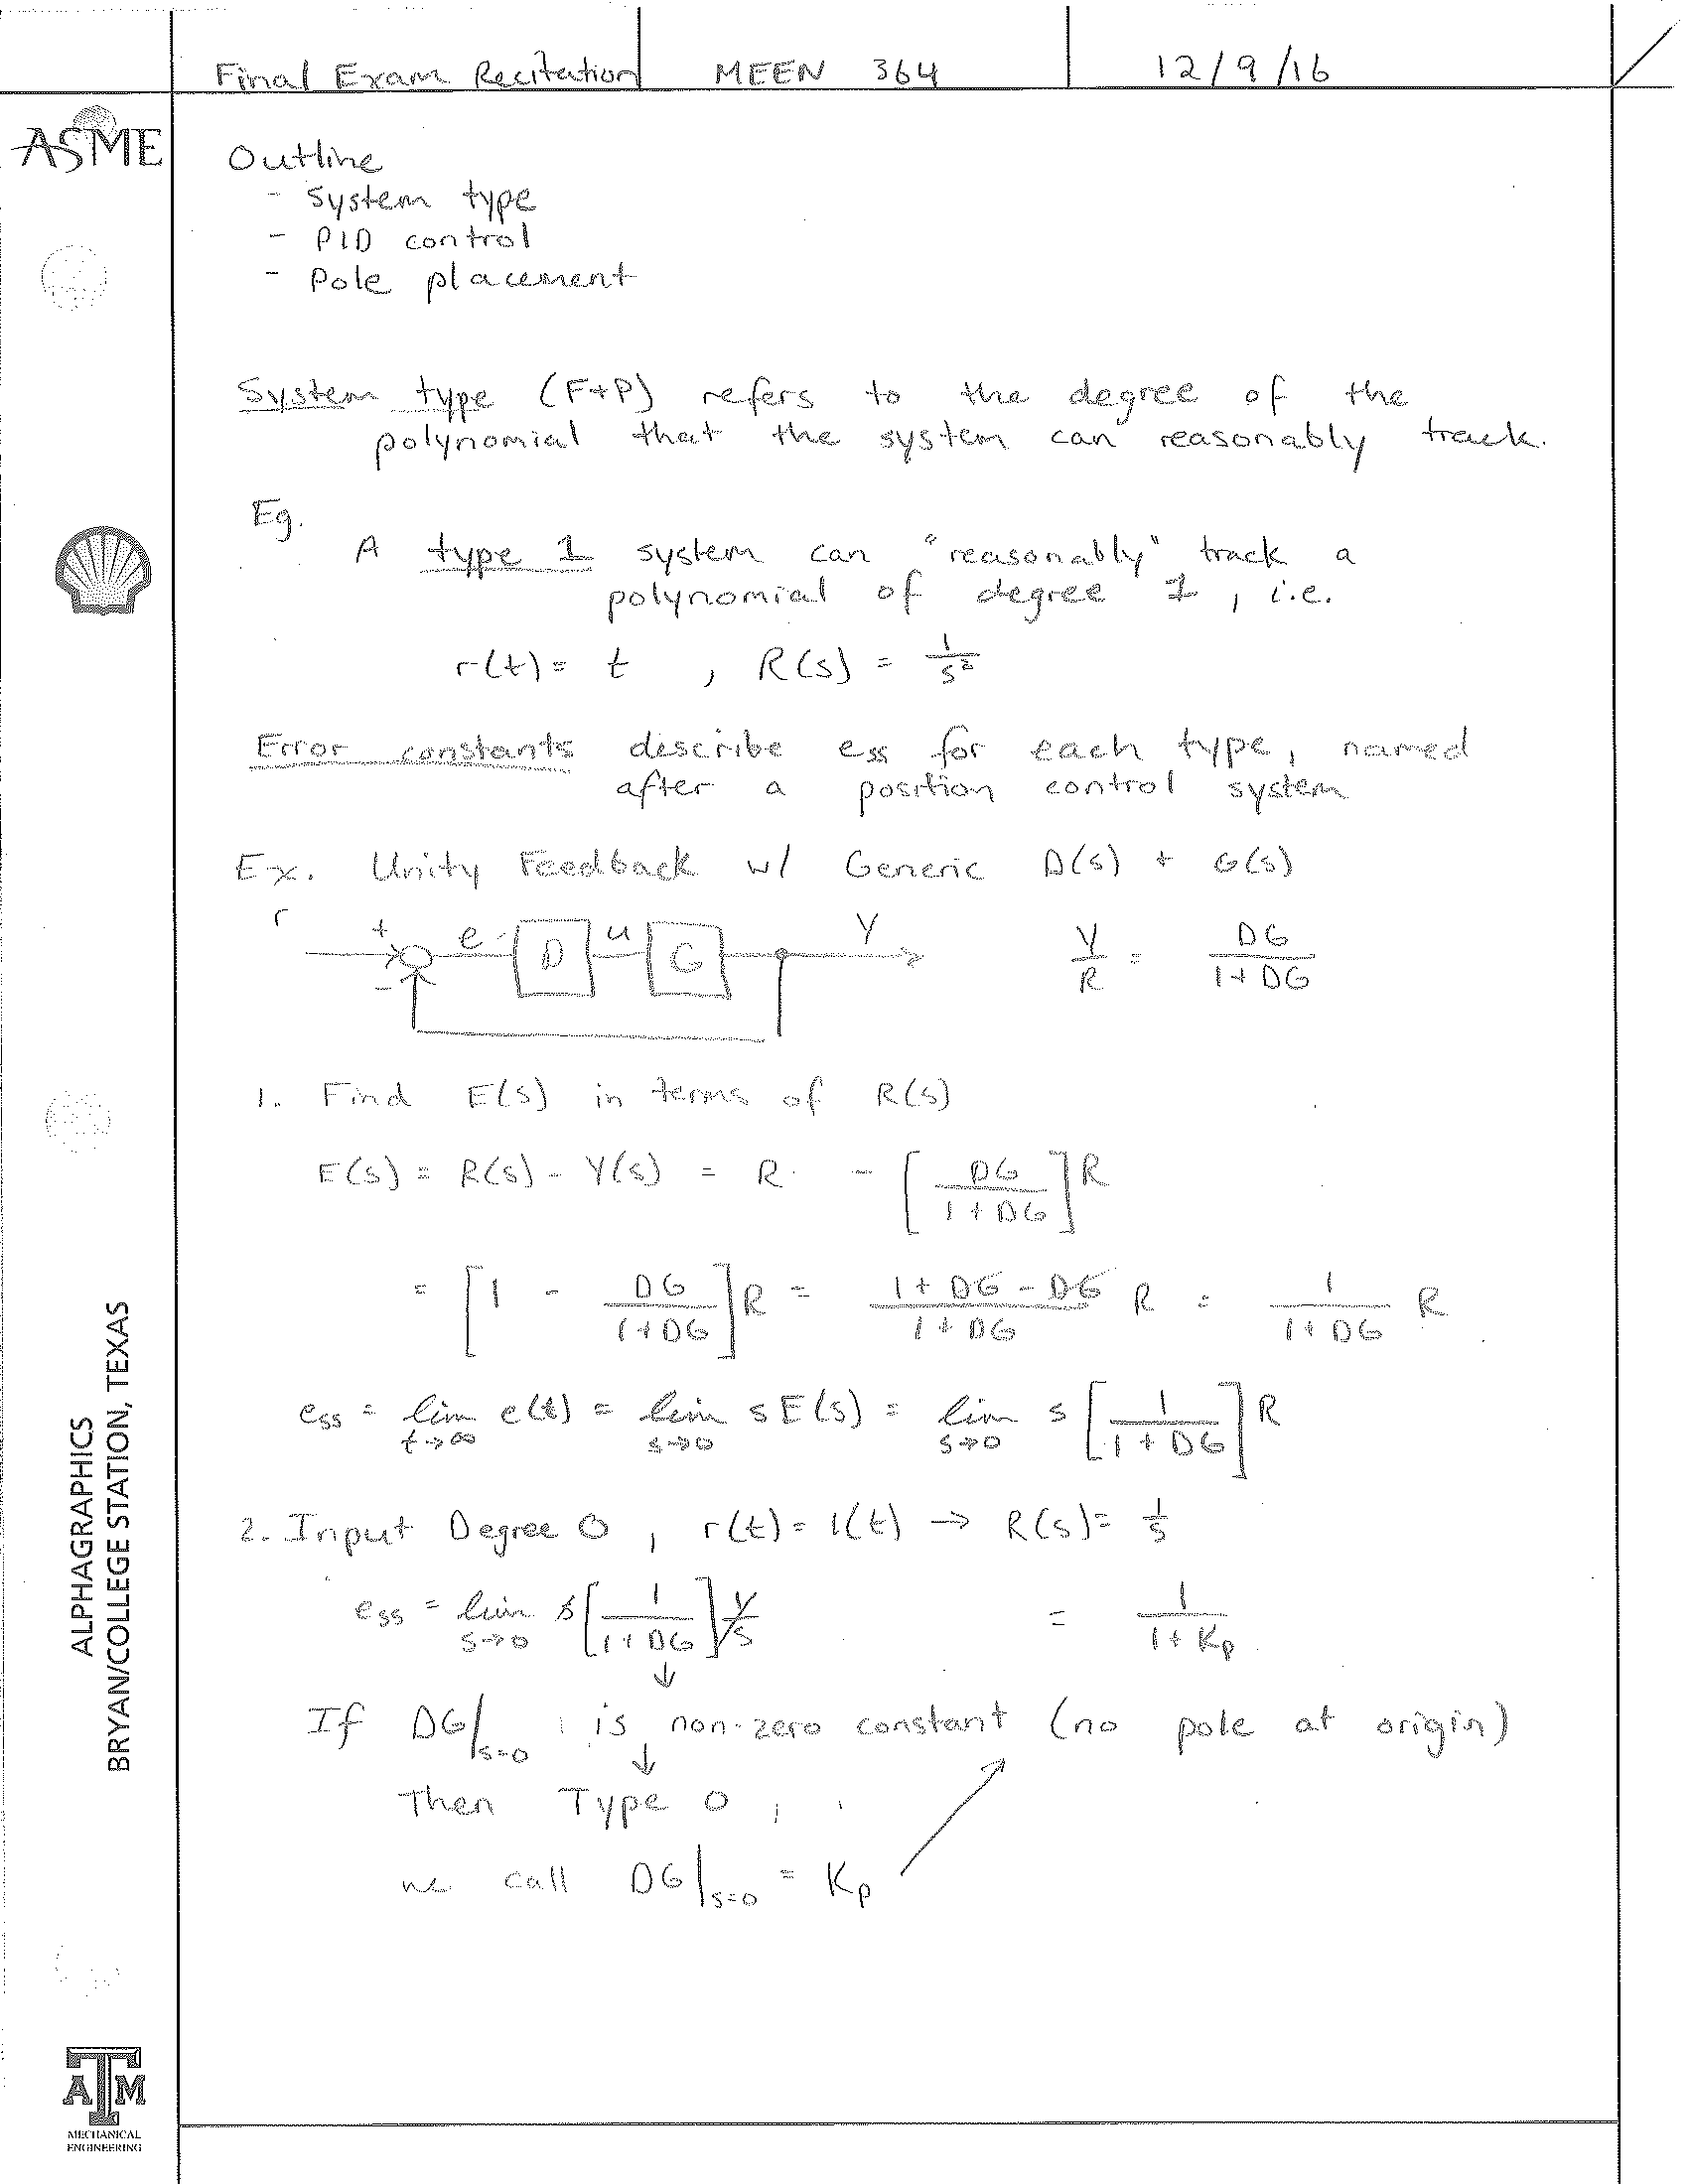 Final Exam Recitation MEEN 364 12/9/16
ASME
Outline
- System type
- PID control
- Pole placement
System type (F+P) refers to the degree of the
polynomial that the system can reasonably track.
Eg.
A type 1 system can "reasonably" track a
polynomial of degree 1, i.e.
r(t) = t , R(s) = 1/s²
Error constants describe ess for each type, named
after a position control system
Ex. Unity Feedback w/ Generic D(s) + G(s)
r + - e D u G Y Y/R = DG/(1+DG)
1. Find E(s) in terms of R(s)
E(s) = R(s) - Y(s) = R - [DG/(1+DG)] R
= [1 - DG/(1+DG)] R = (1+DG-DG)/(1+DG) R = 1/(1+DG) R
ess = lim t→∞ e(t) = lim s→0 s E(s) = lim s→0 s [1/(1+DG)] R
2. Input Degree 0 , r(t) = 1(t) → R(s) = 1/s
ess = lim s→0 s [1/(1+DG)] 1/s = 1/(1+Kp)
↓
If DG|s=0 is non-zero constant (no pole at origin)
↓
Then Type 0 ,
we call DG|s=0 = Kp
ALPHAGRAPHICS
BRYAN/COLLEGE STATION, TEXAS
ATM
MECHANICAL
ENGINEERING